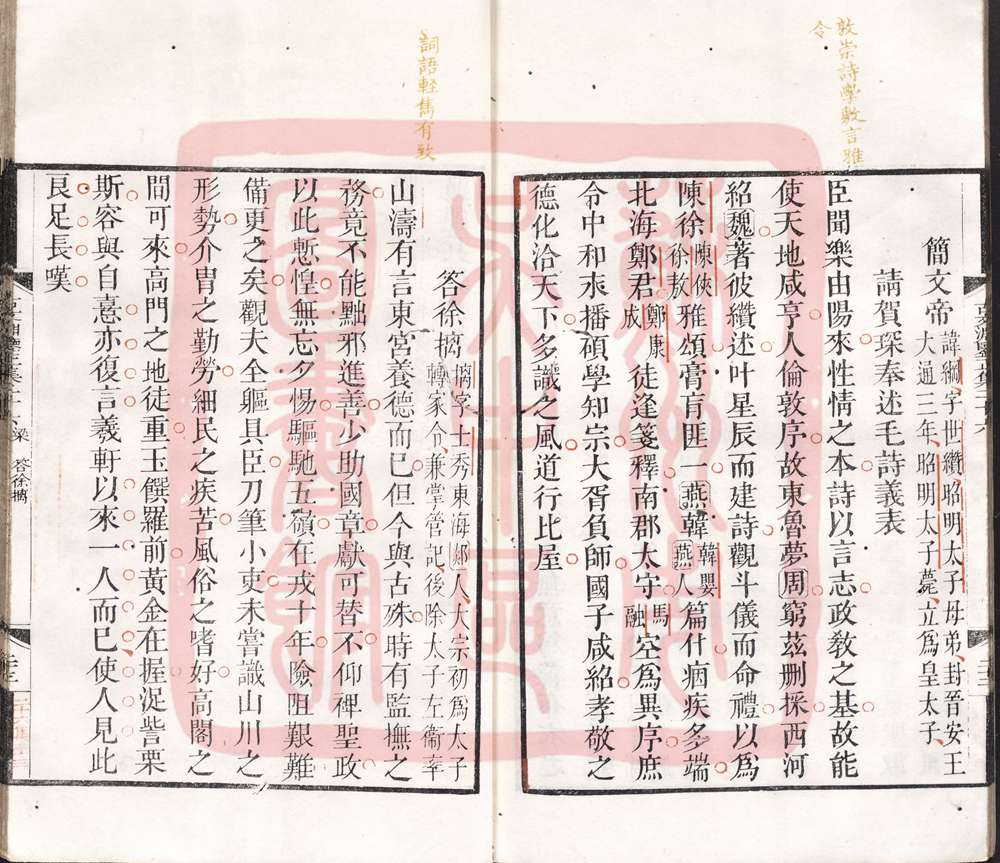 敦崇詩學敷言雅
令
簡文帝諱綱字世纘昭明太子母弟封晉安王大通三年昭明太子薨立爲皇太子
請賀琛奉述毛詩義表
臣聞樂由陽來性情之本詩以言志政敎之基故能
使天地咸亨人倫敦序故東魯夢周窮茲删採西河
紹魏著彼纘述叶星辰而建詩觀斗儀而命禮以爲
陳徐陳俠徐敖雅頌膏肓匪一燕韓燕人韓嬰篇什痼疾多端
北海鄭君鄭康成徒逢箋釋南郡太守馬融空爲異序庶
令中和永播碩學知宗大胥負師國子咸紹孝敬之
德化洽天下多識之風道行比屋
詞語輕雋有致
答徐摛摛字士秀東海郯人大宗初爲太子轉家令兼掌管記後除太子左衞率
山濤有言東宮養德而已但今與古殊時有監撫之
務竟不能黜邪進善少助國章獻可替不仰裨聖政
以此慙惶無忘夕惕驅馳五嶺在戎十年險阻艱難
備更之矣觀夫全軀具臣刀筆小吏未嘗識山川之
形勢介胄之勤勞細民之疾苦風俗之嗜好高閣之
間可來高門之地徒重玉饌羅前黃金在握浞訾栗
斯容與自憙亦復言羲軒以來一人而已使人見此
良足長嘆
梁 答徐摛